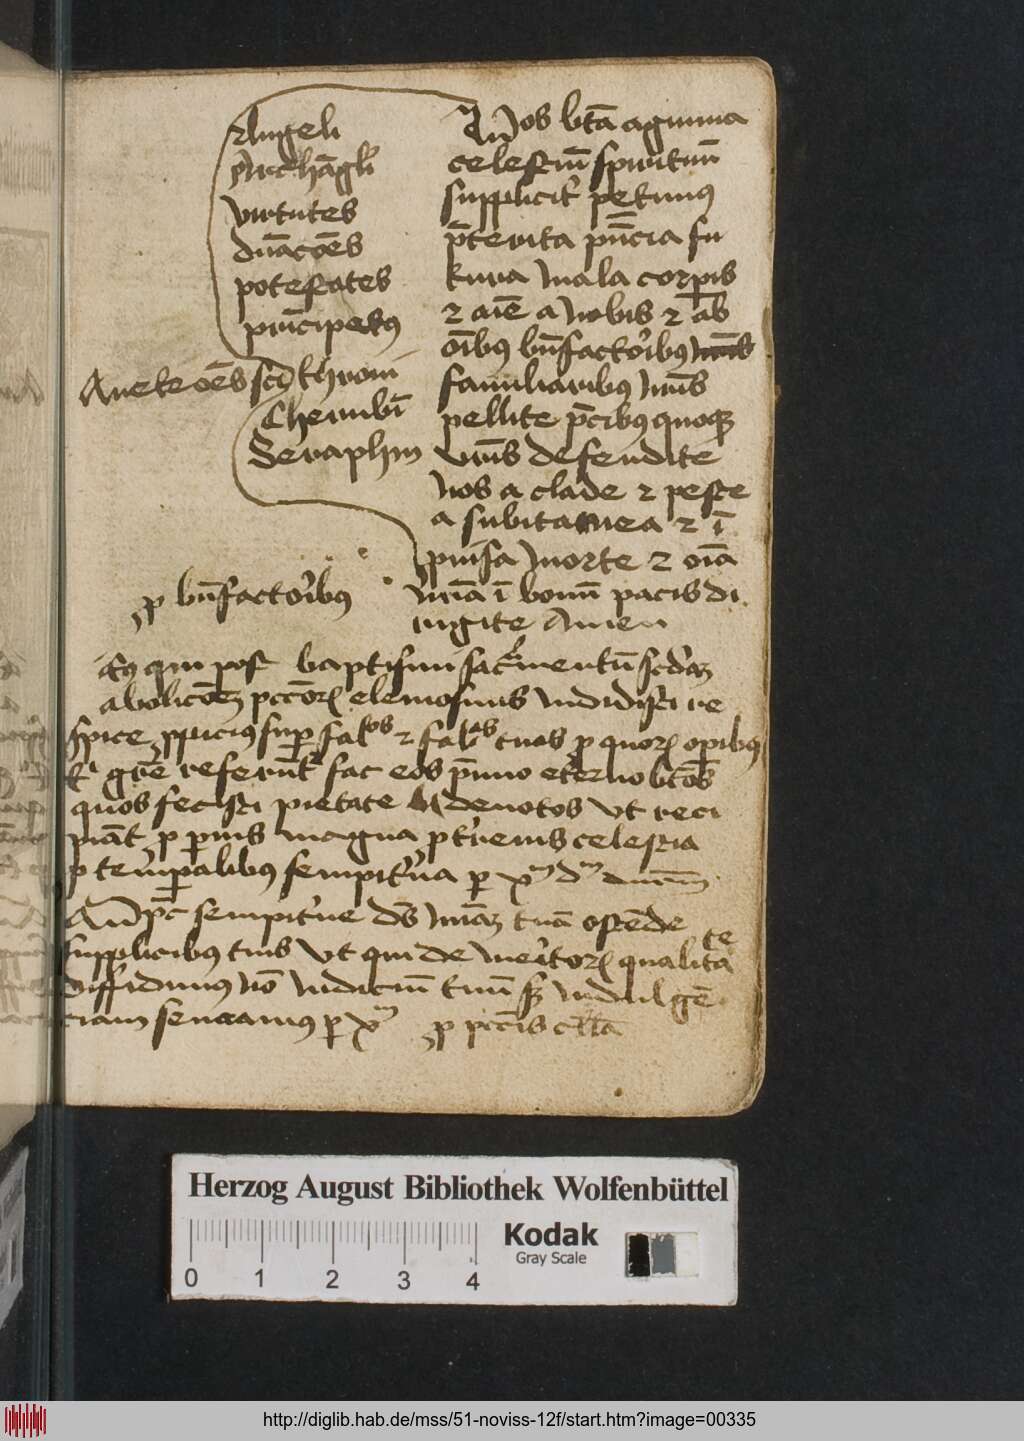 Angeli
Archāgli
virtutes
dnācōes
potestates
prīcipatus
Avete oēs scī throni
Cherubī
Seraphin
Vos btā agmina
celestiū spirituū
suppliciter petimus
p̄terita pn̄cia fu
tura mala corpis
⁊ aīe a nobis ⁊ ab
oībus bn̄factoribus
familiaribus nr̄is
pellite p̄cibus quoque
vr̄is defendite
nos a clade ⁊ peste
a subitanea ⁊ ī
puisa morte ⁊ oīa
nr̄a ī bonū pacis di
rigite Amen
p bn̄factoribus
Ds qui post baptismi sacramentū scd'am
abolicōem pccōrꝝ elemosinis indidisti re
spice ppicius sup falos ⁊ falas tuas p quorꝝ opibus
t' gr̄e referūt' fac eos p̄mio eterno bt̄os
quos fecisti pietate devotos vt reci
piāt p pvis magna p t'renis celestia
p tempalibus sempit'na p xm dm
Omps sempit'ne ds mīam tuā ostēde
supplicibus tuis vt qui de meritorꝝ qualita te
diffidimus nō iudiciū tuū sed indulgē
ciam senciamus p xm p pccīs cllā
Herzog August Bibliothek Wolfenbüttel
Kodak
Gray Scale
0 1 2 3 4
http://diglib.hab.de/mss/51-noviss-12f/start.htm?image=00335